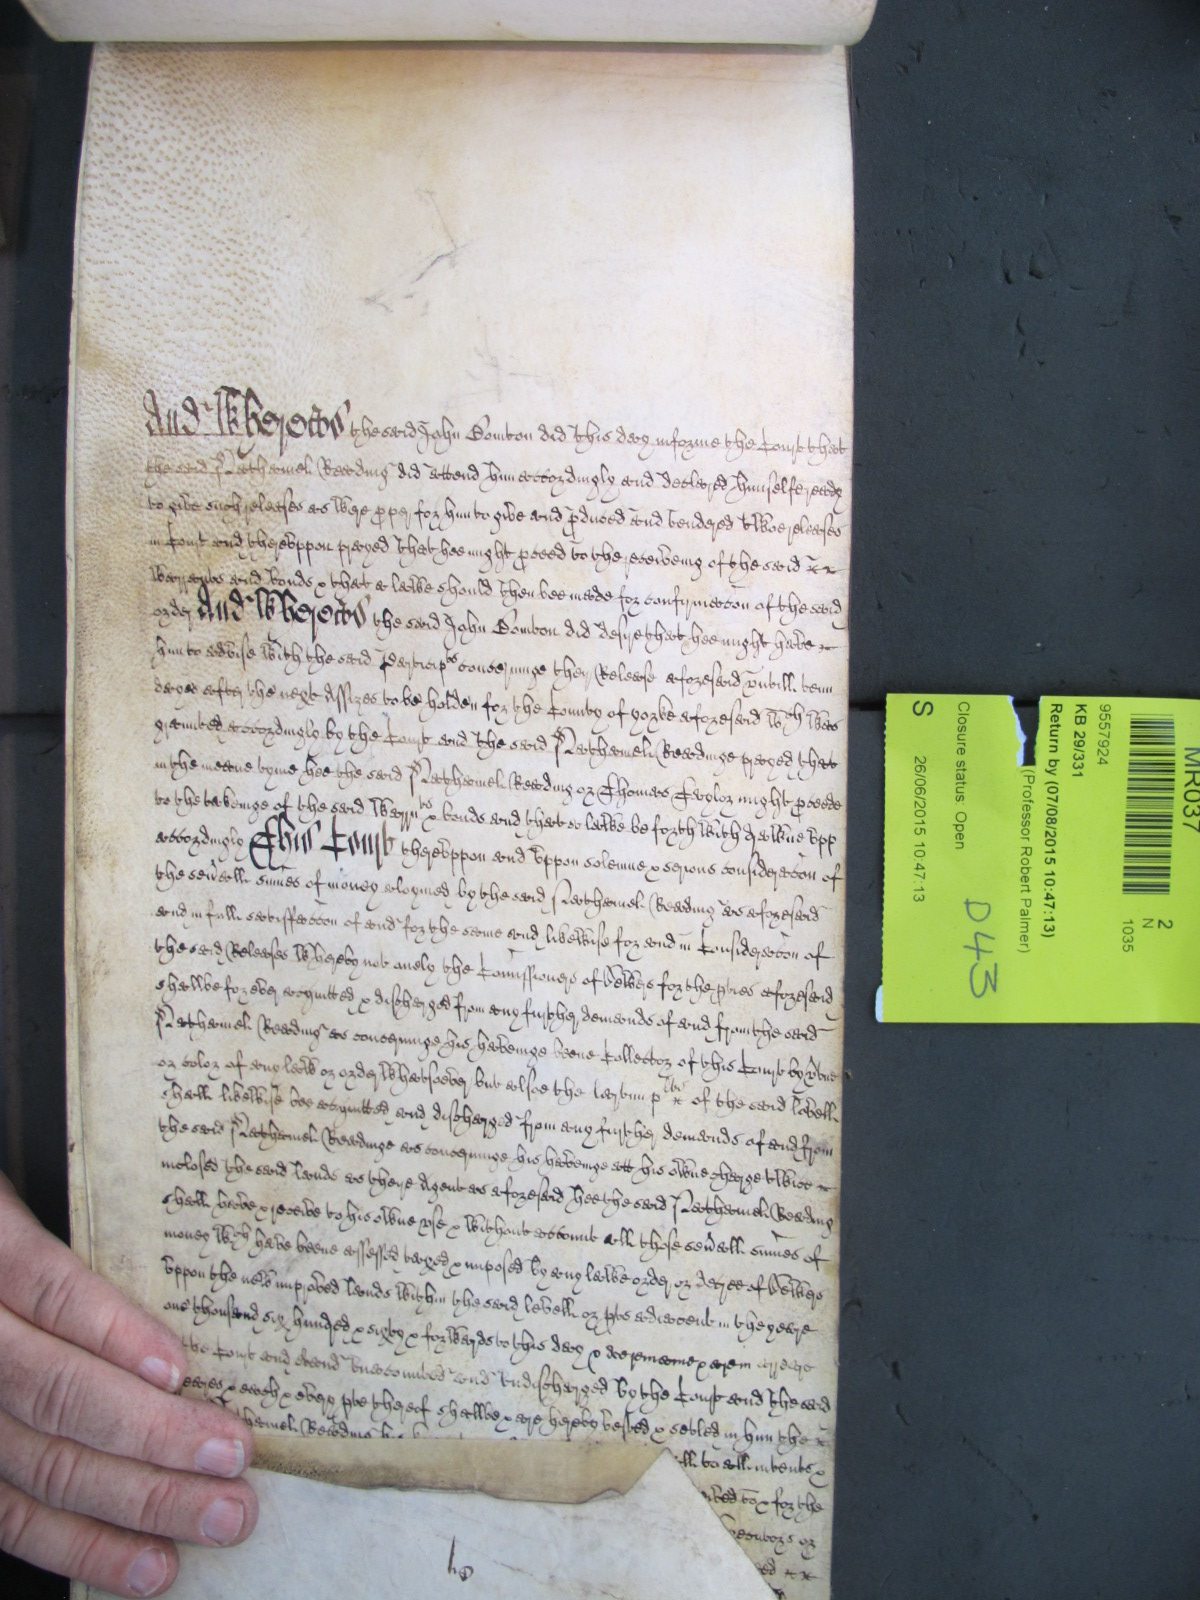 And Whereas the said John Bomton did this day informe the Court that
the said Nathaniel Reading did attend him accordingly and declared himselfe ready
to give such releases as were pper for him to give and pduced and tendered twoe releases
in Court and thereuppon prayed that hee might pceed to the receiveing of the said
Warrants and bonds & that a lawe should then bee made for confirmacon of the said
order And Whereas the said John Bomton did desire that hee might have
him to advise with the said Particips concerninge their Release aforesaid untill tenn
dayes after the next Assizes to be holden for the County of yorke aforesaid wch was
graunted accordingly by the Court and the said Nathaniel Readinge prayed that
in the meane tyme hee the said Nathaniel Reading or Thomas Taylor might pceede
to the takeinge of the said Warrts & bonds and that a lawe be forthwith drawne upp
accordingly This Court thereuppon and uppon solemne & serious consideracon of
the seuall sumes of money claymed by the said Nathaniel Reading as aforesaid
and in full satisfaccon of and for the same and likewise for and in Consideracon of
the said Releases whereby not onely the Comissioners of Sewers for the ptes aforesaid
shallbe for ever acquitted & discharged from any further demands of and from the said
Nathaniel Reading as concerninge his haveinge beene Collector of this Court by vtue
or color of any law or order whatsoever but alsoe the of the said levell
shall likewise bee acquitted and discharged from any further demands of and from
the said Nathaniel Readinge as concerninge his haveinge att his owne charge twice
inclosed the said lands as there Agent as aforesaid hee the said Nathaniel Reading
shall have & receive to his owne use & without accompt all those seuall sumes of
money wch have beene assessed taxed & imposed by any lawe order or decree of Sewers
uppon the new improved lands within the said levell or pts adiacent in the yeare
one thousand six hundred & sixty & forwards to this day & remaine in arrere
the Court and stand unaccompted and undischarged by the Court and the said
& each & every pte thereof shallbe & are hereby vested & setled in him the
Nathaniel Reading his
all to all intents &
to & for the
or

16
MR037
2
N
1035
9557924
KB 29/331
Return by (07/08/2015 10:47:13)
(Professor Robert Palmer)
Closure status: Open
D43
S 26/06/2015 10:47:13